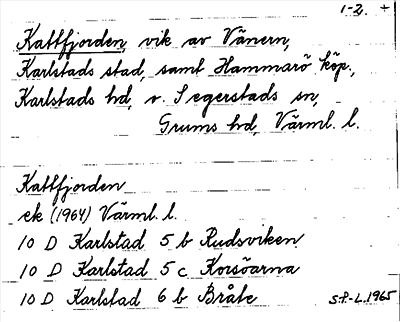 1-2. +
Kattfjorden, vik av Vänern,
Karlstads stad, samt Hammarö köp.,
Karlstads hd, v. Segerstads sn,
Grums hd, Värml. l.
Kattfjorden
ek (1964) Värml. l.
10 D Karlstad 5 b Rudsviken
10 D Karlstad 5 c Korsöarna
10 D Karlstad 6 b Bråte
S.P-L. 1965